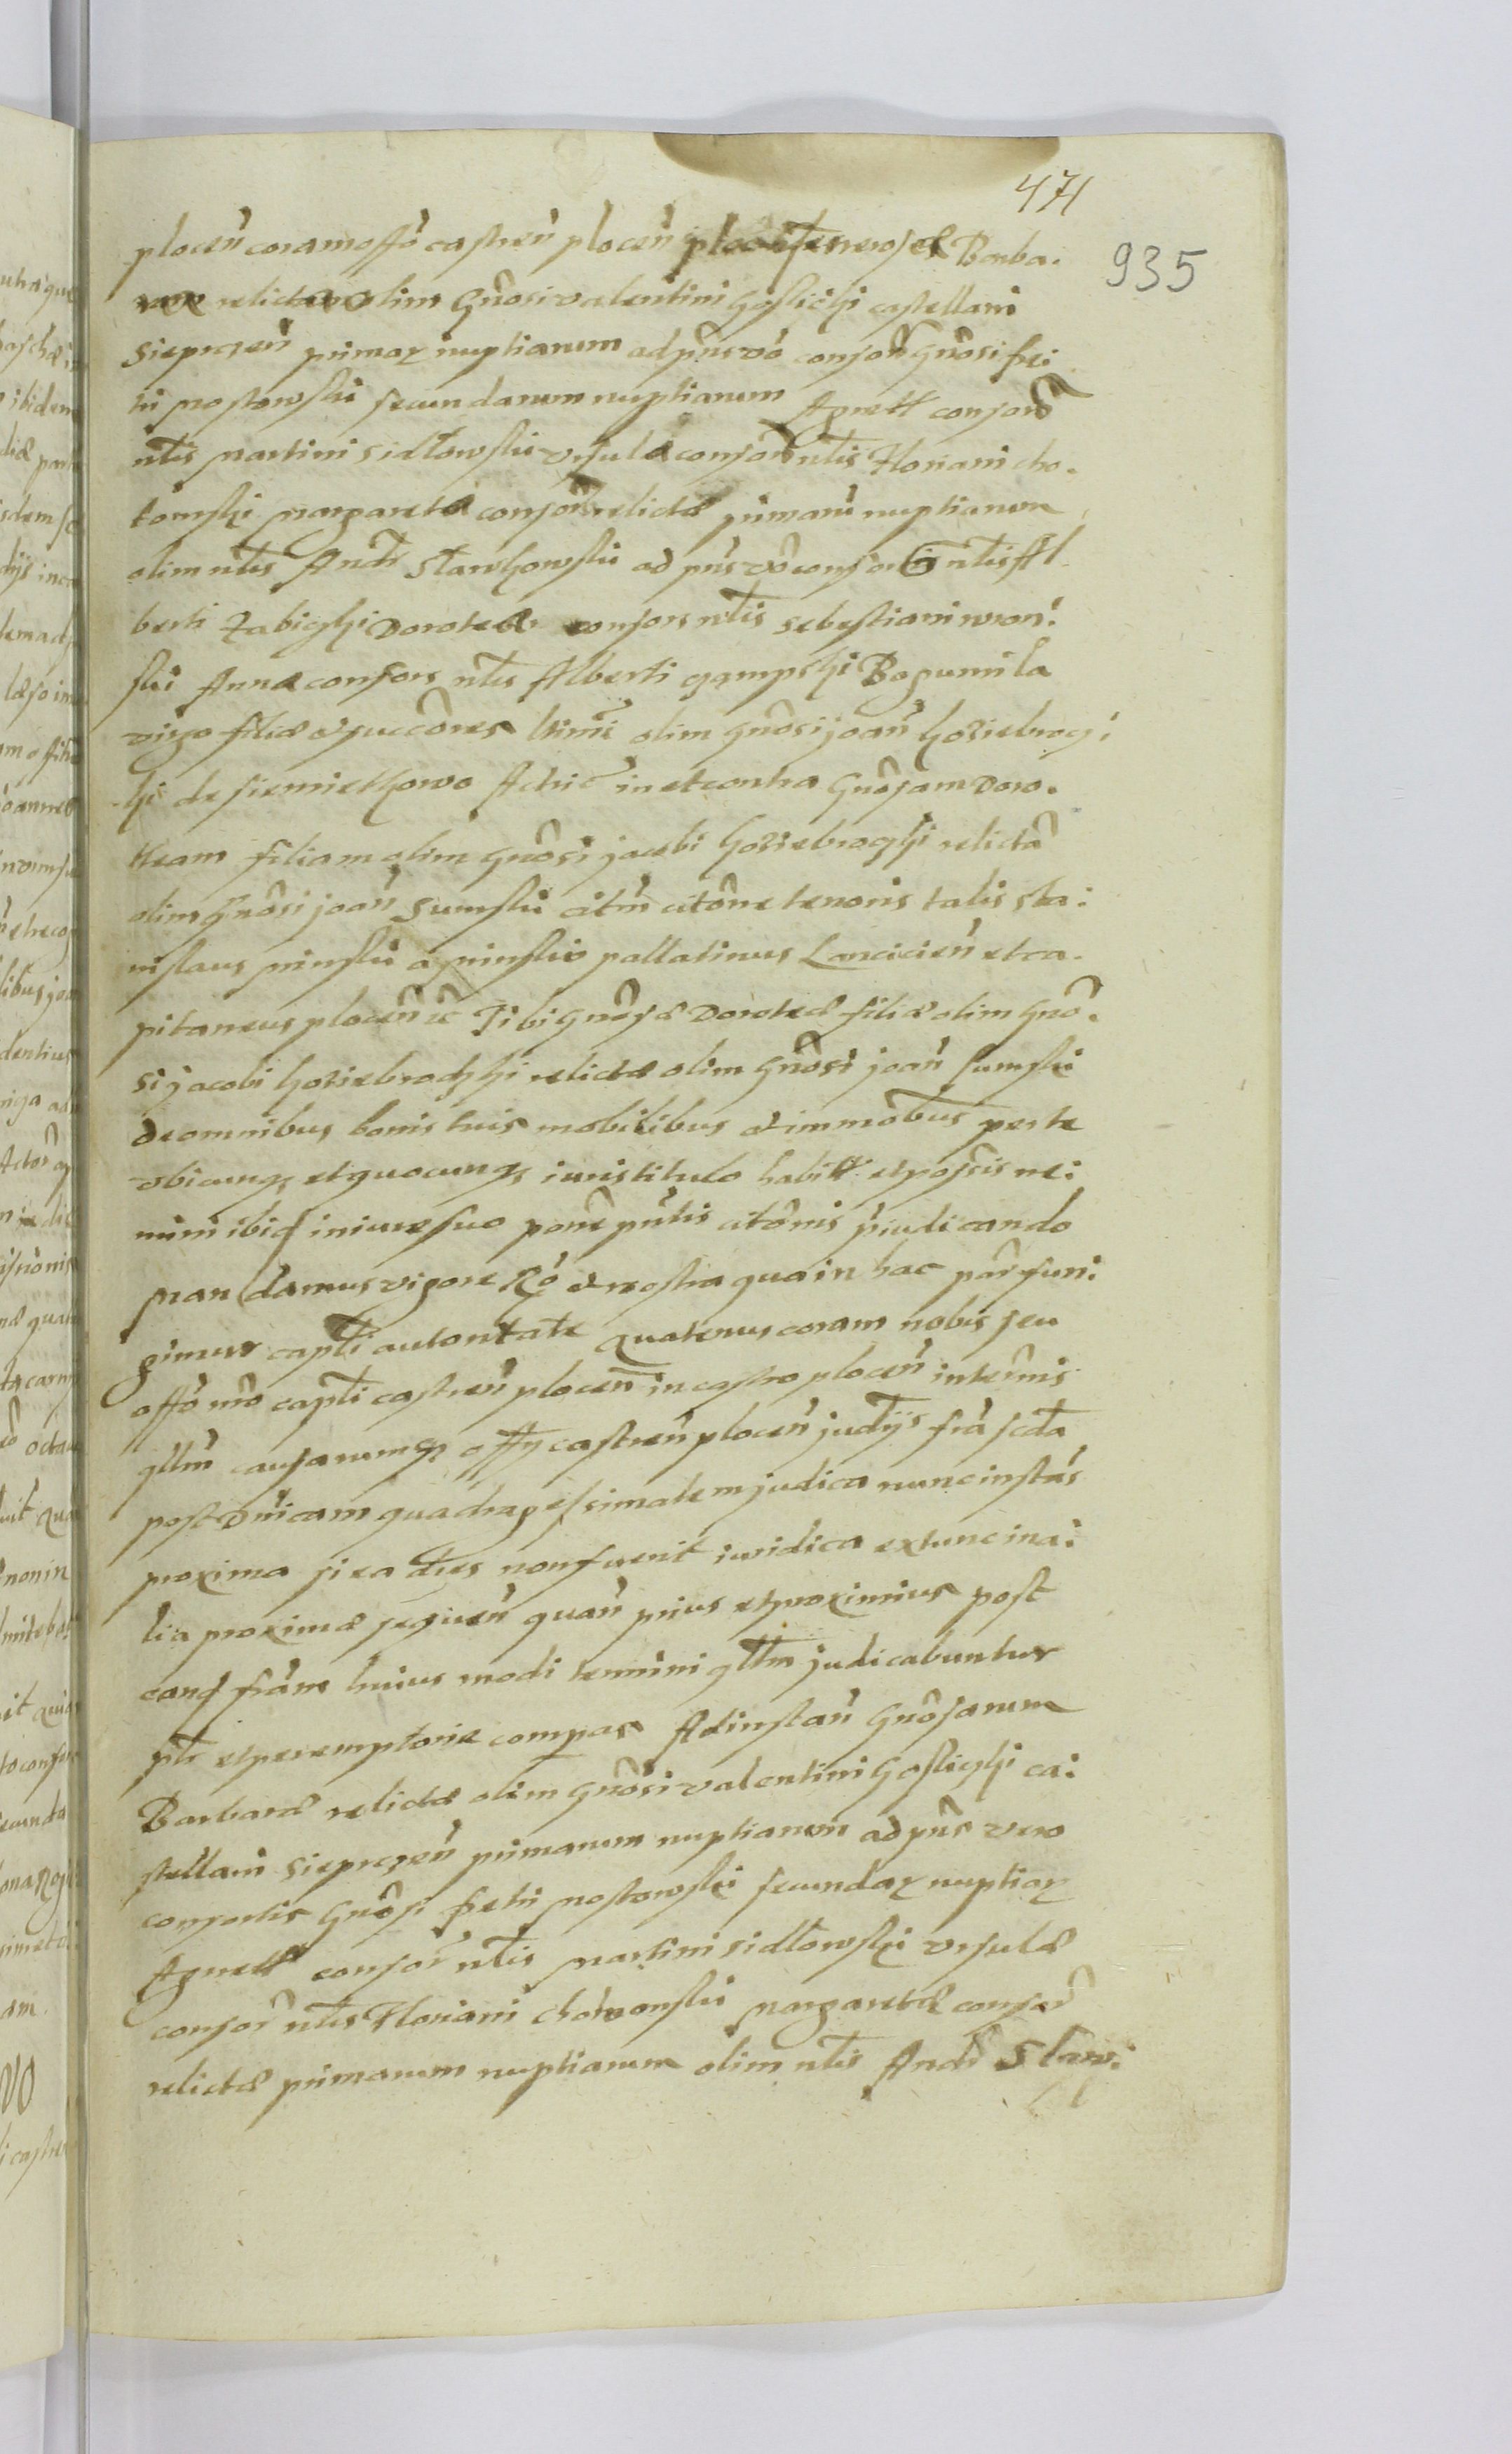 471
935
plocen̄ coram offo castren̄ plocen̄ Barba.
rae relictae olim gnosi valentini goslichi castellani
Sieprczen̄ primar nuptiarum ad pns vo consor gnosi Fe:
lii mostowski secundarum nuptiarum Agnett consor
nlis martini sidlowski vrsulae consor nlis Floriani cho.
tomski margaretae consor relictae primaru nuptiarum
olim nlis Andr Starzhowski ad pns vo consortis nlis Al
berti Zabiczki Doroteae consors nlis sebestiani wron:
ski Anna consors nlis Alberti gampski Bogumila
virgo filiae et succores ltimi olim gnosi joan̄ goziebroc:
hi de siemiethowo Actric in et contra gnosam Doro.
theam filiam olim gnosi jacobi goziebroczhi relictā
olim gnosi joan̄ Sumski citm citone tenoris talis Sta:
nislaus minski a minsko pallatinus Lancicien̄ et ca.
pitaneus plocen̄ rc Tibi gnosae Doroteae filiae olim gno.
si jacobi goziebroczhi relictae olim gnosi joan̄ sumski
de omnibus bonis tuis mobilibus et immobus per te
vbicunq, et quocunq, iuris titulo habitt et possis ne:
mini ibid in iure suo pone pntis citonis piudicando
man damus vigore Ro et nostra qua in hac par fun:
gimur capli autoritate Quatenus coram nobis seu
offo nro capli castren̄ plocen̄ in castro plocen̄ in termis
qllm causarumq, offy castren̄ plocen̄ judijs fra scda
post Dnicam quadragessimalem judica nunc instas
proxima si ea dies non fuerit iuridica extunc in a:
lia proximae sequen̄ quan̄ prius et proximius post
eand fram huius modi termini qllm judicabuntur
plr et peremptorie compas Ad instan̄ gnosarum
Barbarae relictae olim gnosi valentini gosliczhi ca:
stellani Sieprczen̄ primarum nuptiarum ad pns vero
consortis gnosi Felii mostowski secundar nuptiar
Agnett consor nlis martini sidlowski vrsulae
consor nlis Floriani chotomski margaretae consor
relictae primarum nuptiarum olim nlis Andr Starz: